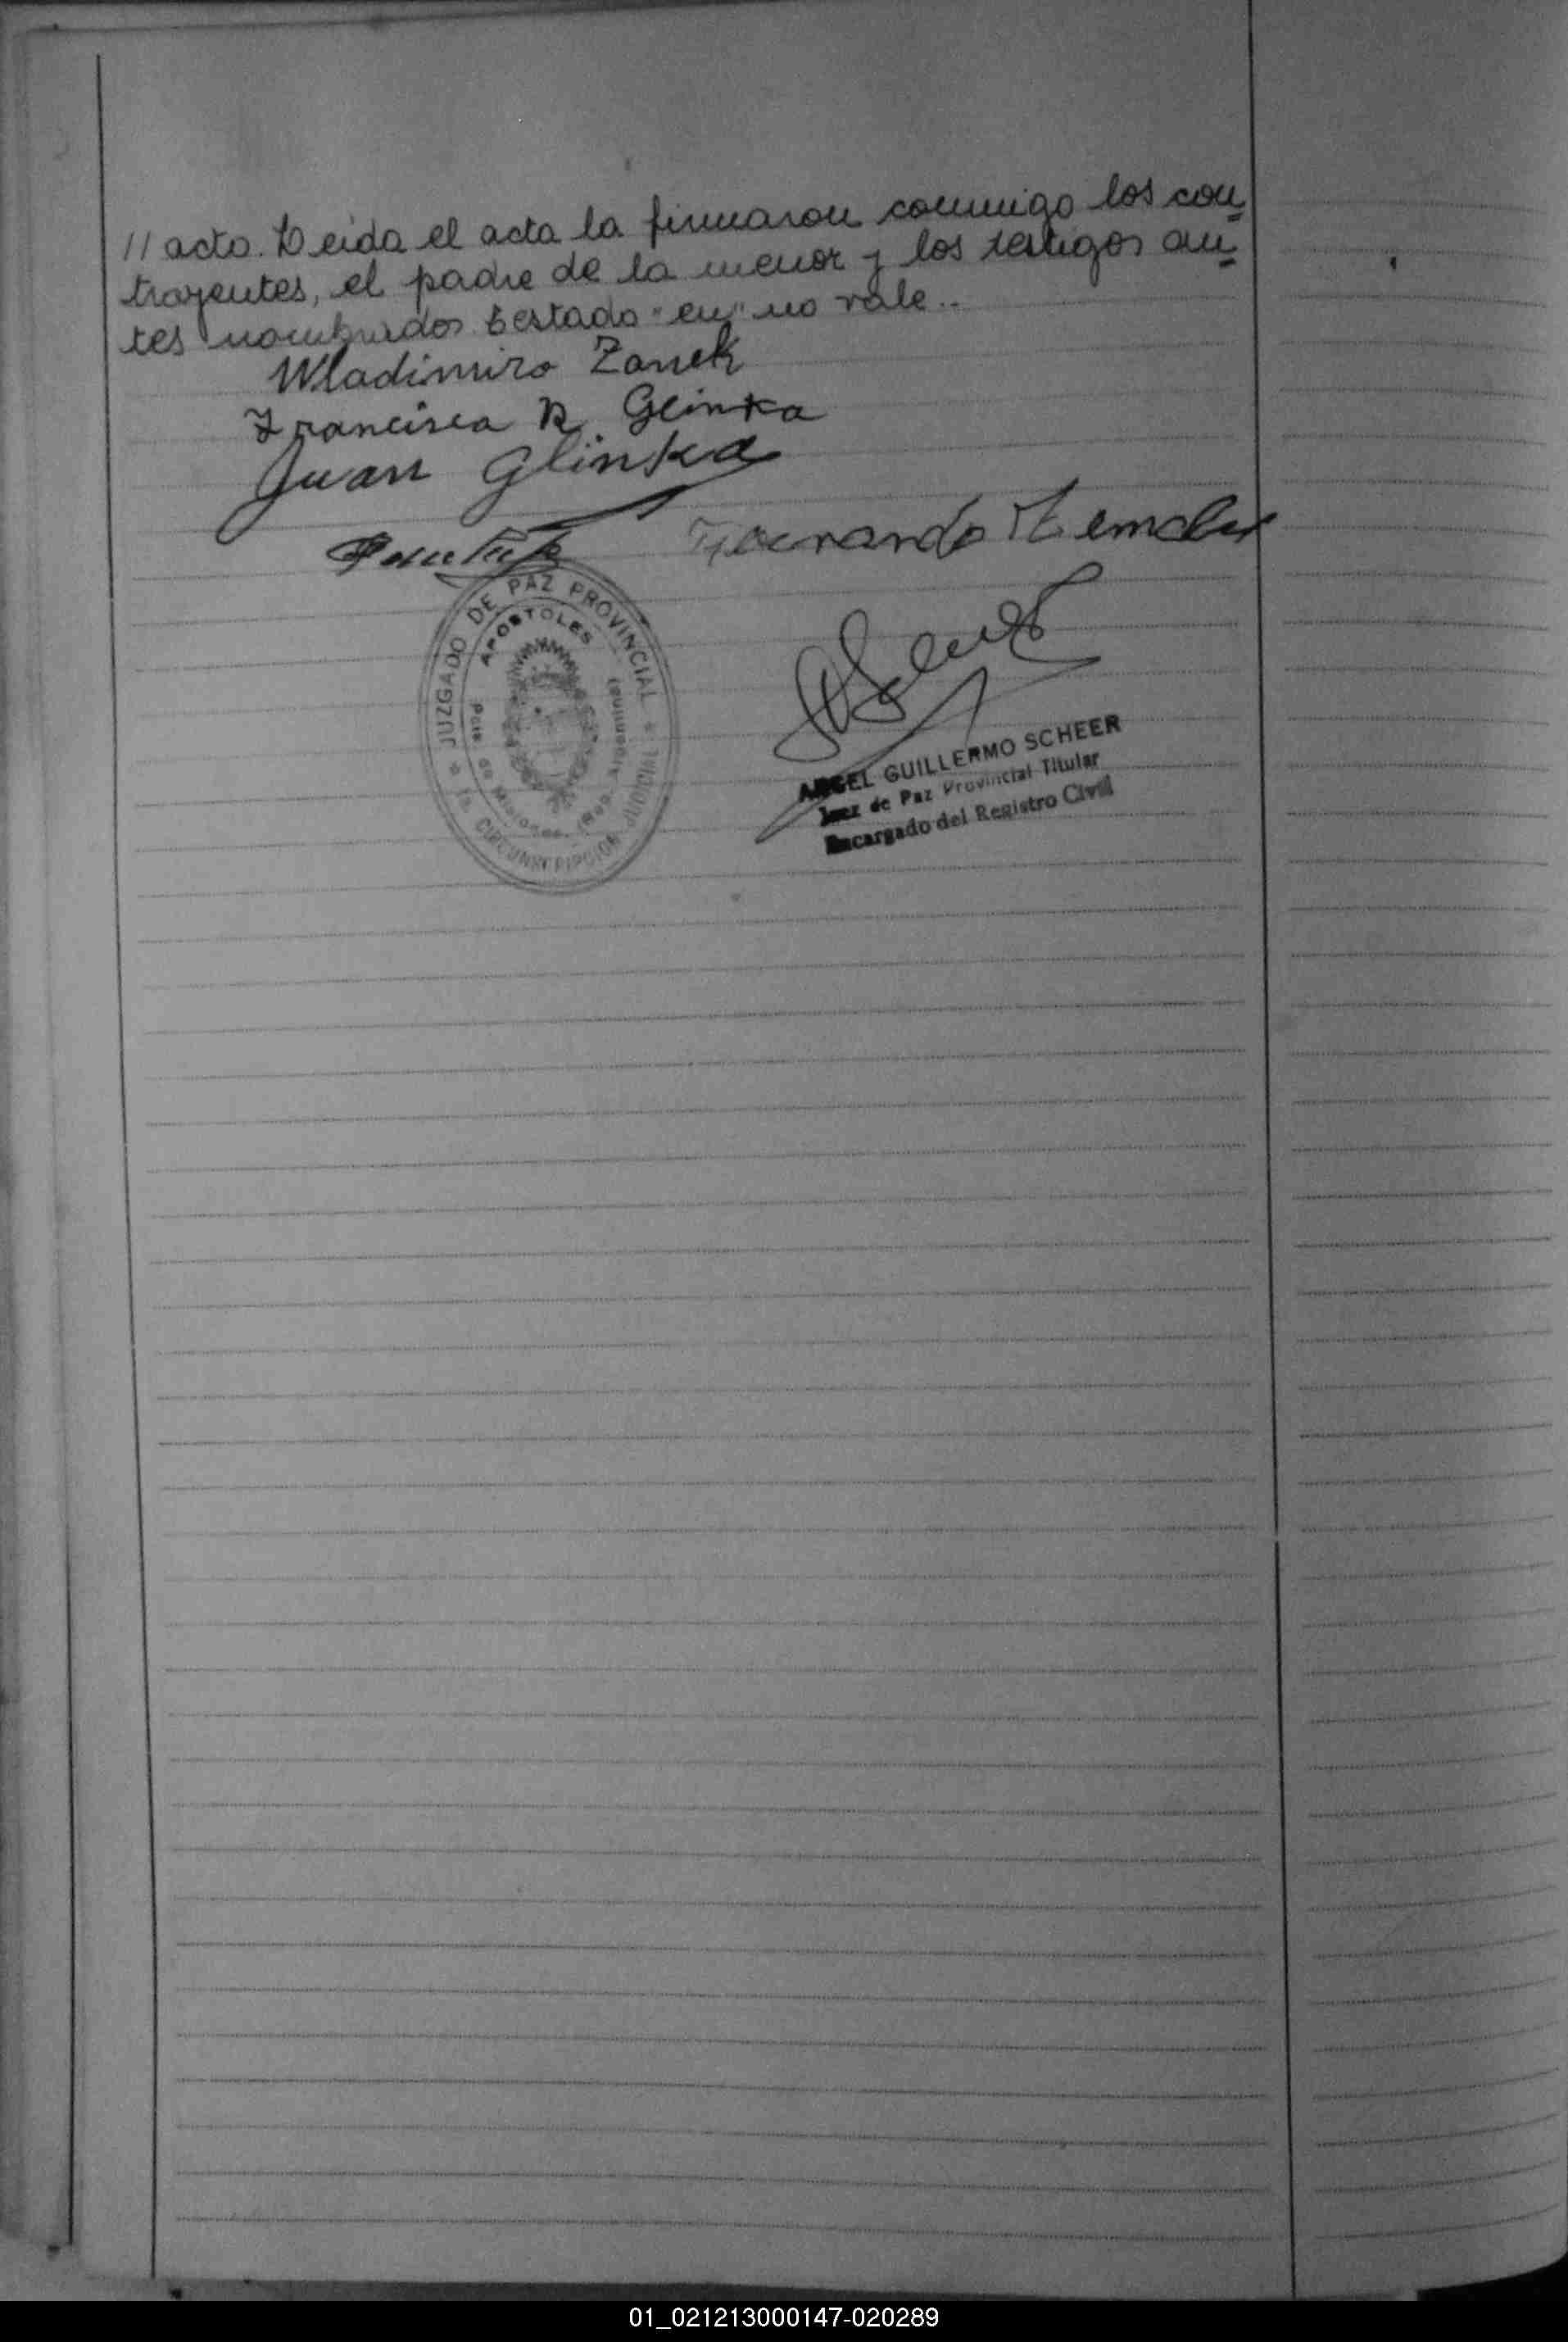 // acto. Leida el acta la firmaron conmigo los con
trayentes, el padre de la menor y los testigos an
tes nombrados. testado "en" no vale..
Wladimiro Zanek
Francisca R. Glinka
Juan Glinka
JUZGADO DE PAZ PROVINCIAL
APOSTOLES
Pcia. de Misiones (Rep. Argentina)
1a. CIRCUNSCRIPCION JUDICIAL
ANGEL GUILLERMO SCHEER
Juez de Paz Provincial Titular
Encargado del Registro Civil
01_021213000147-020289